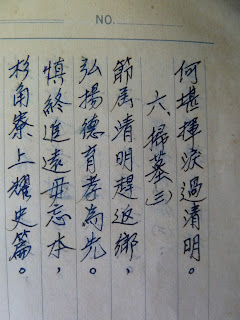 NO.
何堪揮淚過清明。
六、掃墓(三)
節届清明趕返鄉，
弘揚德育孝為先。
慎終追遠毋忘本，
杉角寮上耀史篇。